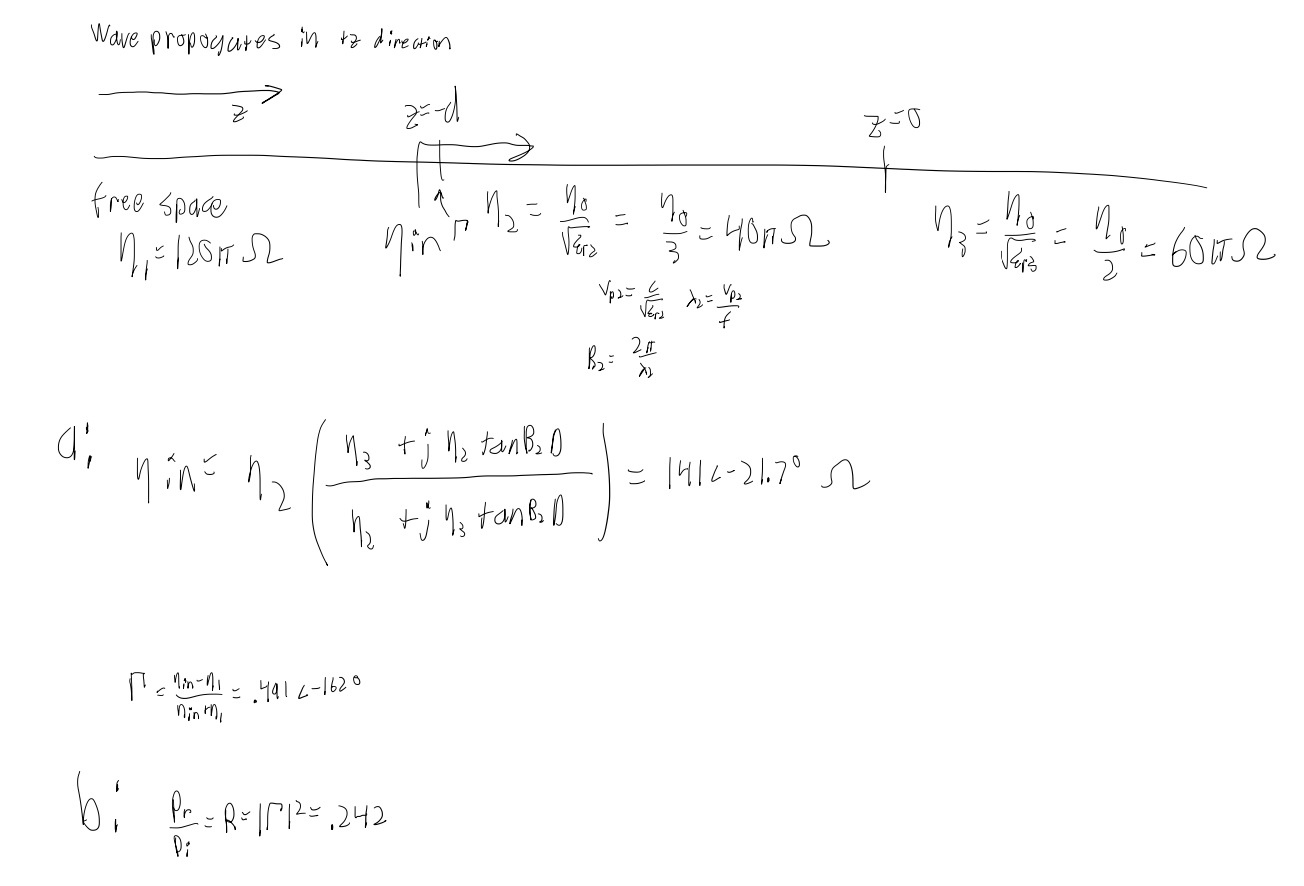 Wave propogates in +z direction
z
z=-d
z=0
free space
η₁=120π Ω
ηin
Γ
η₂ = η₀/√εr2 = η₀/3 = 40πΩ
η₃ = η₀/√εr3 = η₀/2 = 60πΩ
Vp2 = c/√εr2 λ₂ = Vp2/f
B₂ = 2π/λ₂
a: ηin = η₂ ( (η₃ + j η₂ tanB₂D) / (η₂ + j η₃ tanB₂D) ) = 141∠-21.7° Ω
Γ = (ηin-η₁)/(ηin+η₁) = .491∠-162°
b: Pr/Pi = R = |Γ|² = .242